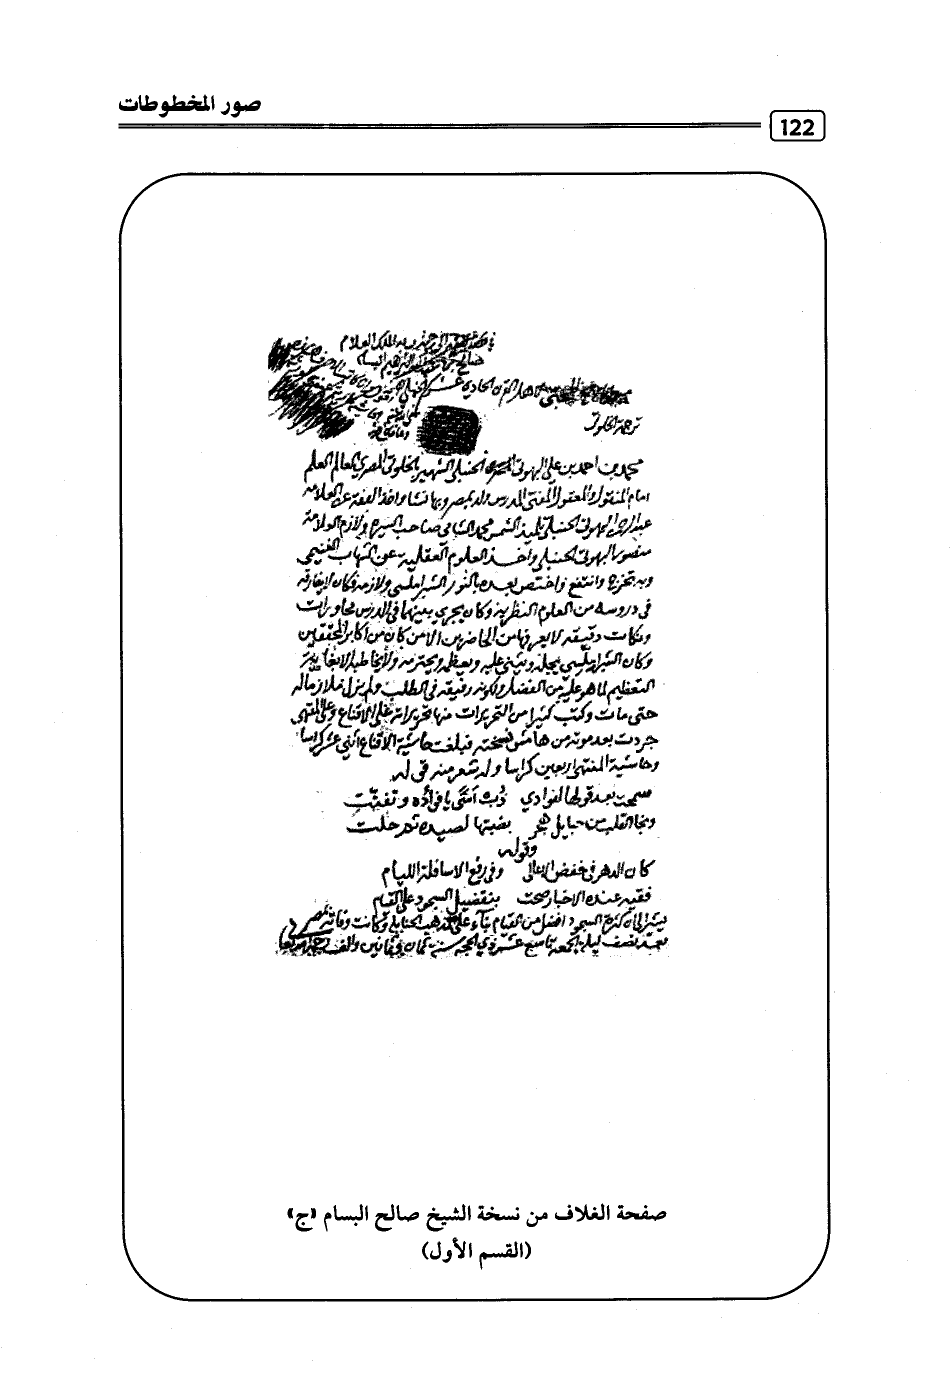 صور المخطوطات
122
صالح
ترجمة الخلوتي
محمد بن احمد بن علي البهوتي الحنبلي الشهير بالخلوتي المصري العالم العلم
امام المنقول والمعقول المفتي المدرس ولد بمصر وبها نشا واخذ الفقه عن العلامة
عبد الرحمن البهوتي الحنبلي تلميذ الشمس محمد الشامي صاحب السيرة ولازم العلامة
منصور البهوتي الحنبلي واخذ العلوم العقلية عن الشهاب الغنيمي
وبه تخرج وانتفع واختص بعده بالنور الشبراملسي ولازمه فكان لا يفارقه
في دروسه من العلوم النظرية وكان يجري بينهما في الدرس محاورات
ونكات دقيقة لا يعرفها من الحاضرين الا من كان من اكابر المحققين
وكان الشبراملسي يجله ويثني عليه ويعظمه ويحترمه ولا يخاطبه الا بغاية
التعظيم لما هو عليه من الفضل ولكونه رفيقه في الطلب ولم يزل ملازما له
حتى مات وكتب كثيرا من التحريرات منها تحريراته على الاقناع وعلى المنتهى
جردت بعد موته من هامش نسخته فبلغت حاشية الاقناع اثني عشر كراسا
وحاشية المنتهى اربعين كراسا وله شعر منه قوله
سمحت بعد قولها لفوادي ذب اسى يا فؤاده وتفتت
ونجا القلب من حبايل هجر نصبتها لصيده ثم حلت
وقوله
كان الدهر في خفض الاعالي وفي رفع الاسافلة اللئام
فقيه عنده الاخبار صحت بتفضيل السجود على القيام
يشير الى ان كثرة السجود افضل من القيام بناء على مذهب الحنابلة وكانت وفاته بمصر
بعد نصف ليلة الجمعة تاسع عشر ذي الحجة سنة ثمان وثمانين والف رحمه الله تعالى
صفحة الغلاف من نسخة الشيخ صالح البسام «ج»
(القسم الأول)